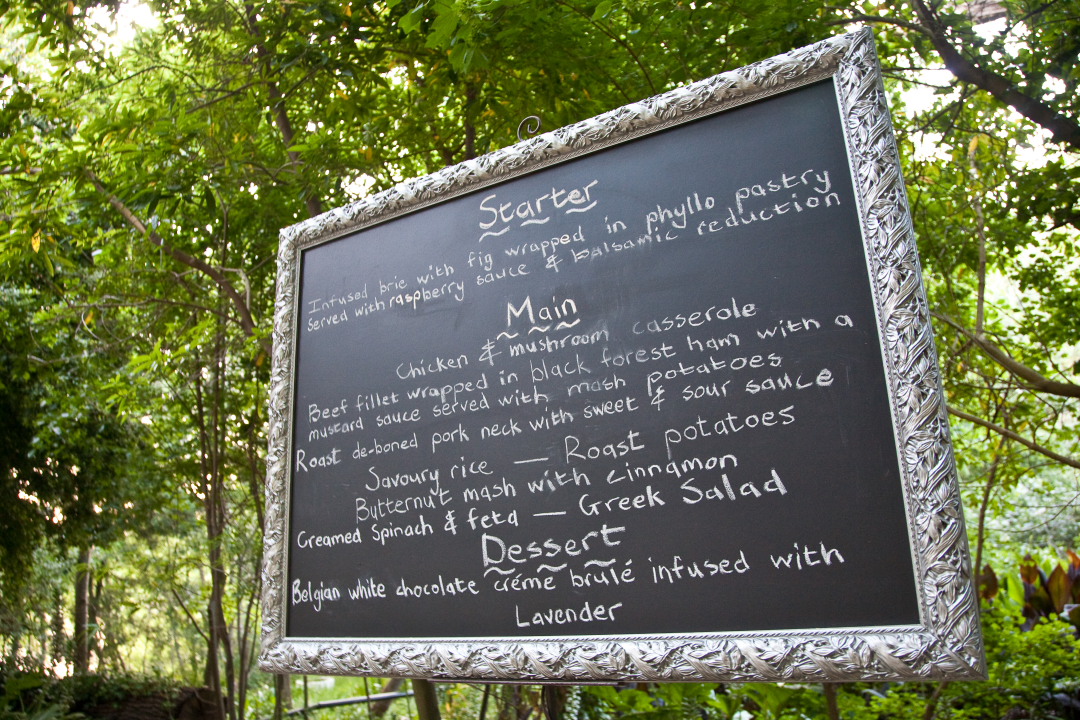 Starter
Infused brie with fig wrapped in phyllo pastry
Served with raspberry sauce & balsamic reduction
Main
Chicken & mushroom casserole
Beef fillet wrapped in black forest ham with a
mustard sauce served with mash potatoes
Roast de-boned pork neck with sweet & sour sauce
Savoury rice — Roast potatoes
Butternut mash with Cinnamon
Creamed Spinach & feta — Greek Salad
Dessert
Belgian white chocolate créme brulé infused with
Lavender